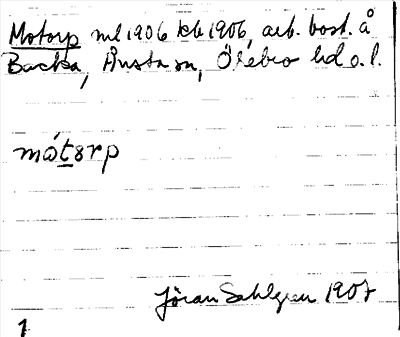 Motorp ml 1906 kb 1906, arb. bost. å
Backa, Ånsta sn, Örebro hd o. l.
mótorp
Jöran Sahlgren 1907
1